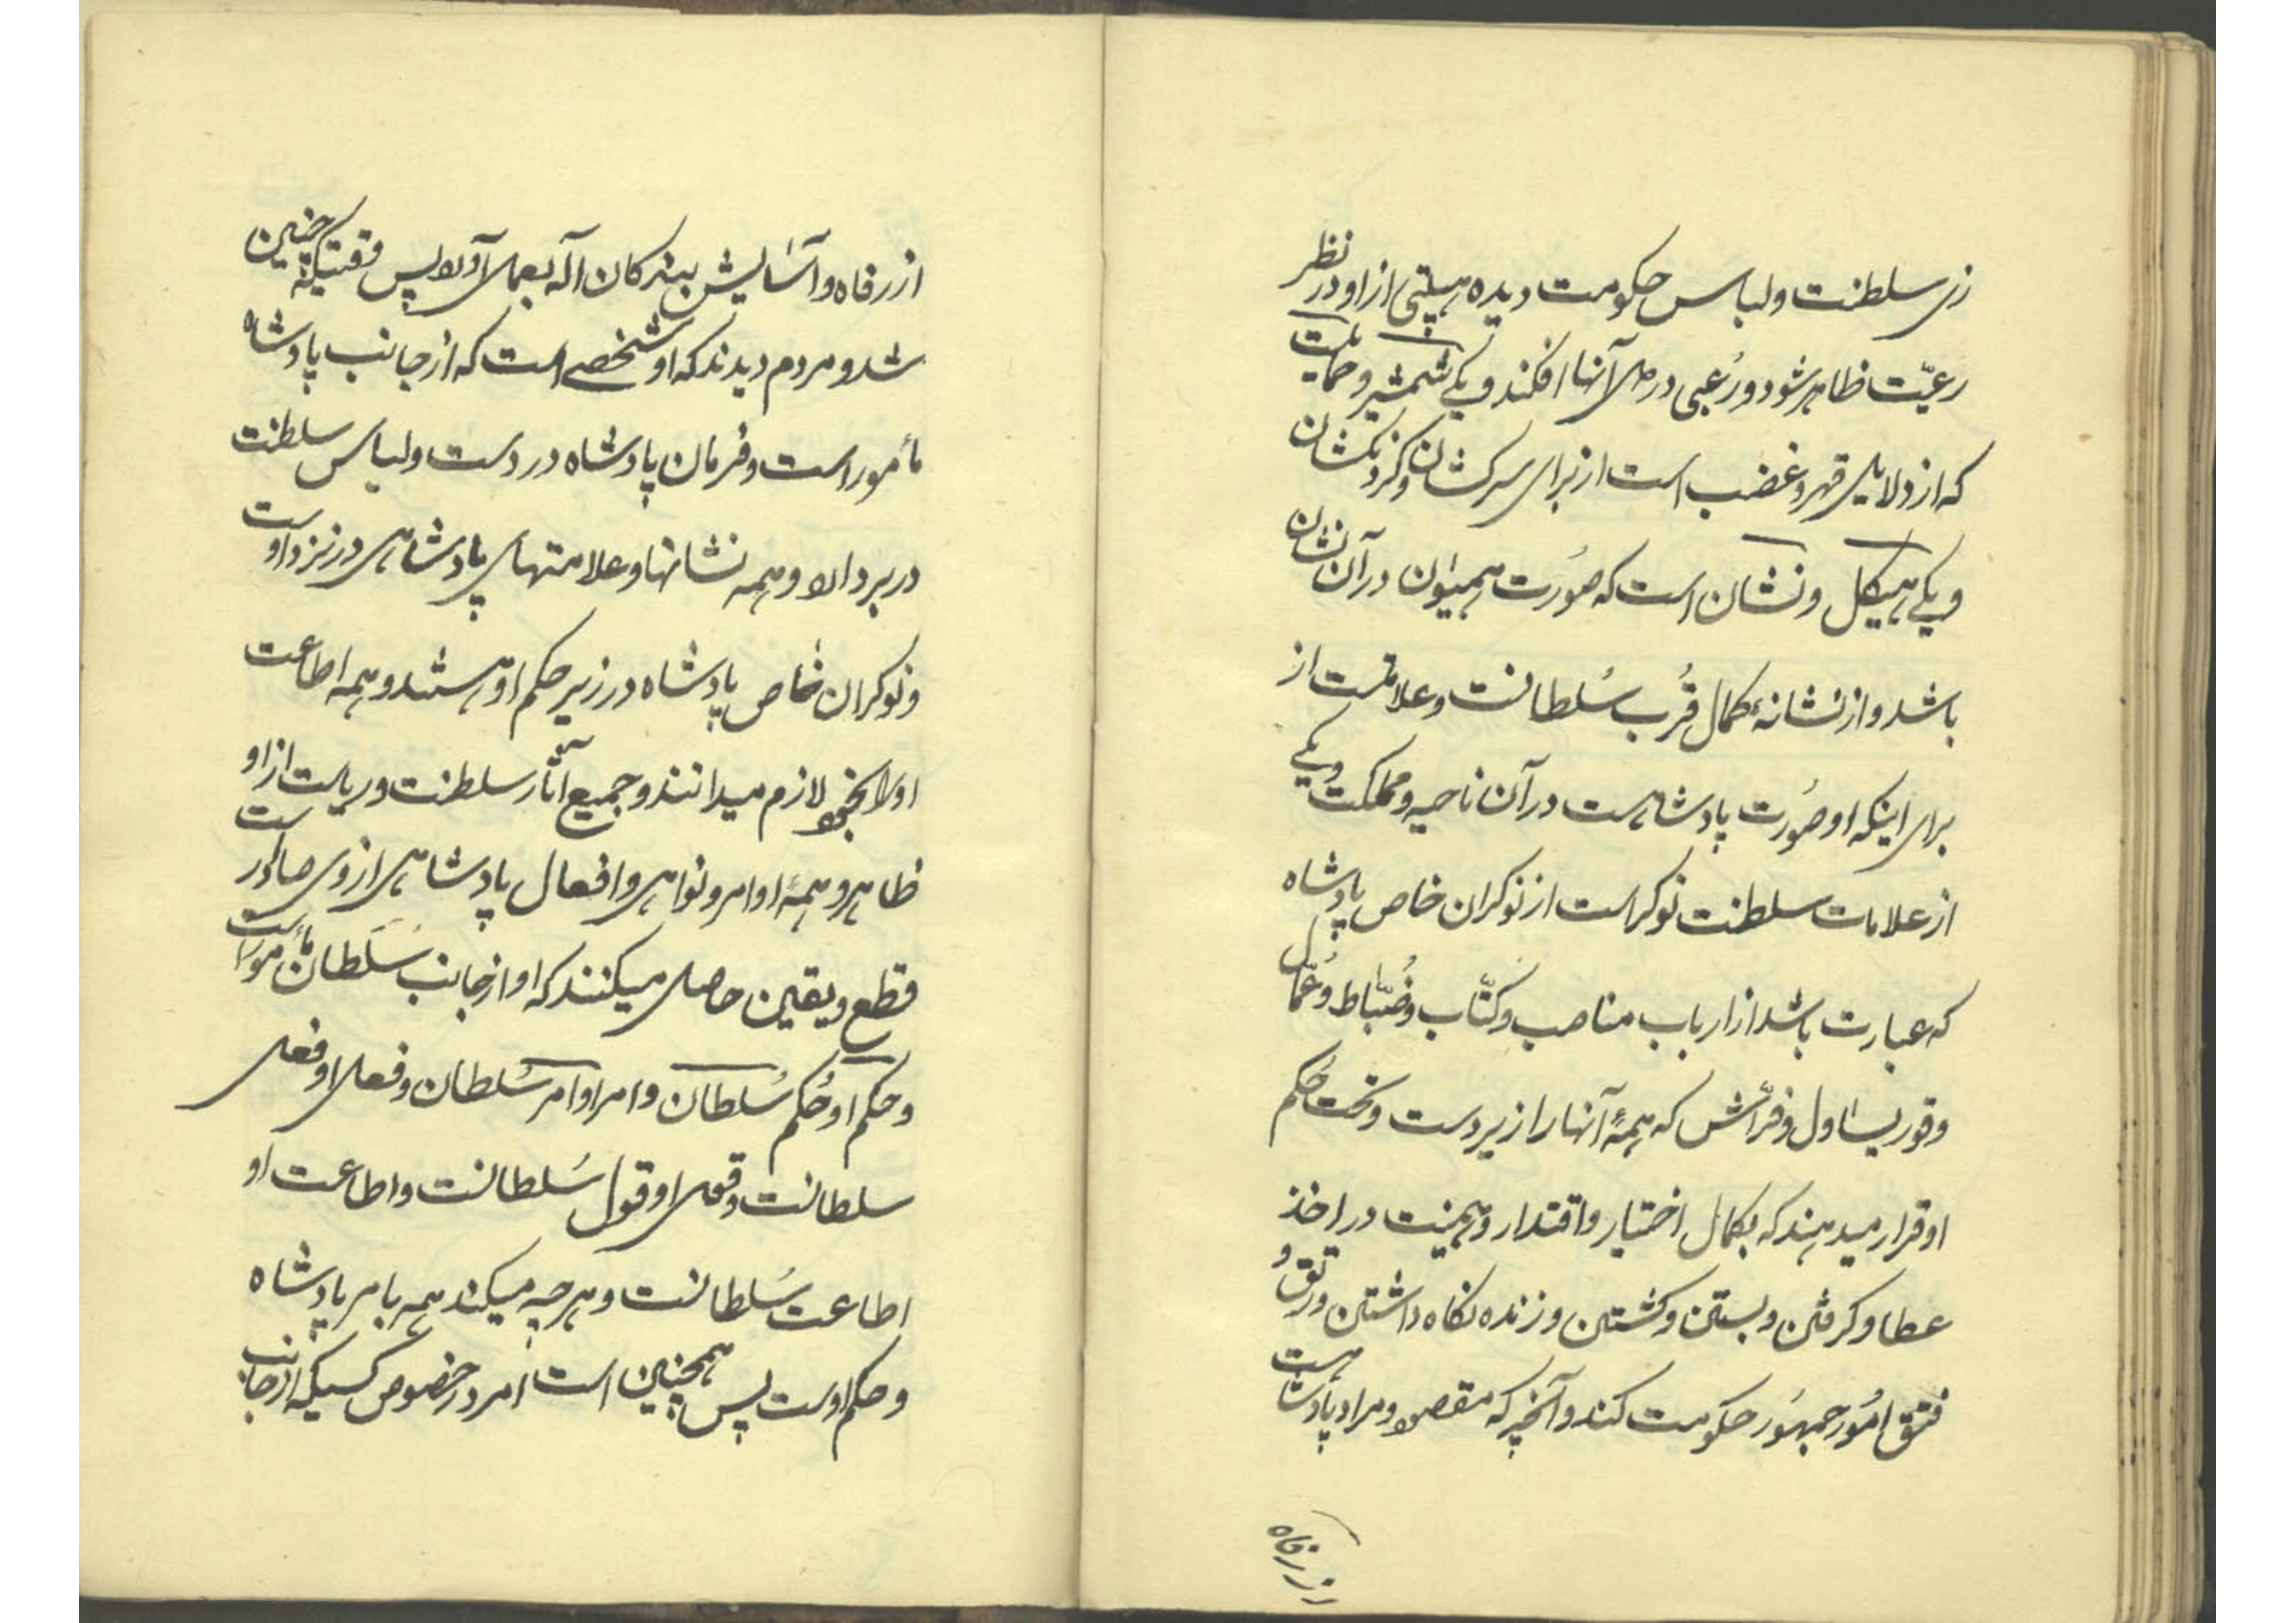 زی سلطنت ولباس حکومت دیده هیبتی از او در نظر
رعیّت ظاهر شود ورُعبی در دل آنها افکند و یکی شمشیر وحمایلست
که از دلایل قهر وغضب است از برای سرکشان وگردنکشان
و یکی هیکل ونشان است که صُورت همیون در آن نشان
باشد و از نشانهٔ کمال قُرب سُلطانست وعلامتست از
برای اینکه او صُورت پادشاهست در آن ناحیه ومملکت ویکی
از علامات سلطنت نوکر است از نوکران خاص پادشاه
که عبارت باشد از ارباب مناصب وکتّاب وضُبّاط وعُمّال
وقور یساول وفرّاش که همهٔ آنها را زیردست وتحت حُکم
او قرار میدهند که بکمال اختیار واقتدار وهیمنت در اخذ
عطا وکرفتن وبستن وکشتن وزنده نکاه داشتن ورتق و
فتق امُور جمهُور حکومت کند وآنچه که مقصود ومراد پادشاهست
از رفاه
از رفاه وآسایش بندکان اله بعمل آورد پس وقتیکه چنین
شد ومردم دیدند که او شخصی است که از جانب پادشاه
مأمور است وفرمان پادشاه در دست ولباس سلطنت
در بر دارد وهمه نشانها وعلامتهای پادشاهی در نزد اوست
ونوکران خاص پادشاه در زیر حکم او هستند وهمه اطاعت
او را بخود لازم میدانند وجمیع آثار سلطنت وریاست از او
ظاهر وهمهٔ اوامر ونواهی وافعال پادشاهی از وی صادر است
قطع ویقین حاصل میکنند که او از جانب سُلطان مأمور است
وحکم او حُکم سُلطان وامر او امر سُلطان وفعل او فعل
سلطانست وقول او قول سُلطانست واطاعت او
اطاعت سُلطانست وهرچه میکند همه بامر پادشاه
وحکم اوست پس همچنین است امر در خصوص کسیکه از جانب